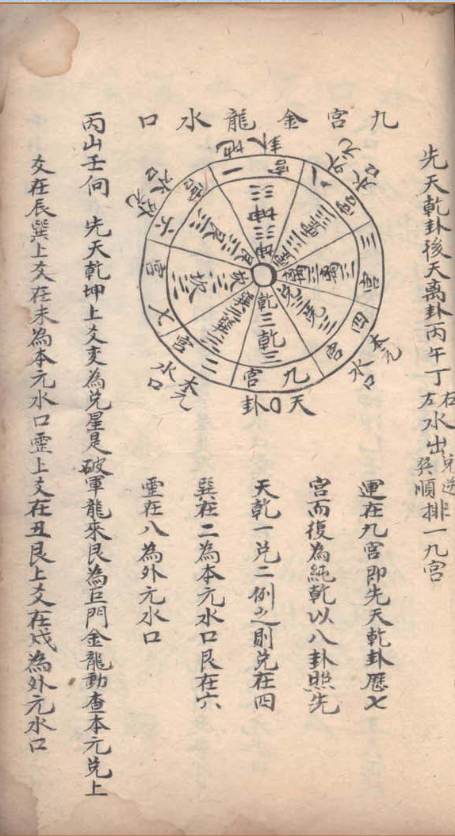 先天乾卦後天離卦丙午丁右左水出兌逆巽順排一九宮
九宮金龍水口
地卦
一宮
坤
坤
外元水口
八宮
震
三宮
離
離
本元水口
四宮
兌
兌
天卦
九宮
乾
乾
本元水口
二宮
巽
巽
七宮
坎
坎
外元水口
六宮
艮
艮
運在九宮即先天乾卦歷七
宮而復為純乾以八卦照先
天乾一兌二例之則兌在四
巽在二為本元水口艮在六
震在八為外元水口
丙山壬向 先天乾坤上爻変為兌星是破軍龍來艮為巨門金龍動查本元兌上
爻在辰巽上爻在未為本元水口震上爻在丑艮上爻在戌為外元水口